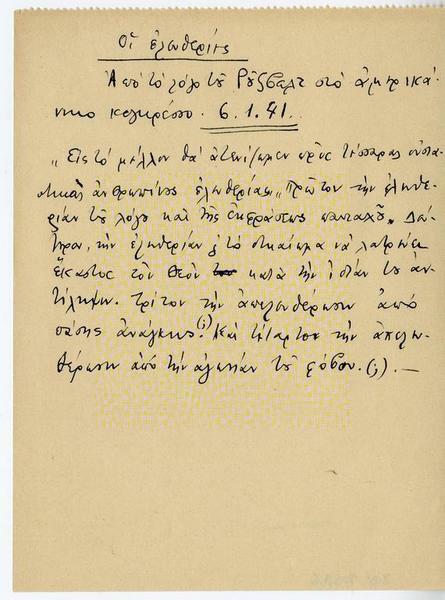 Οἱ ἐλευθερίες
Ἀπὸ τὸ λόγο τοῦ Ροῦσβελτ στὸ ἀμερικά-
νικο κογκρέσσο. 6.1.41.
„Εἰς τὸ μέλλον θὰ ἀτενίζωμεν πρὸς τέσσαρας οὐσια-
στικὰς ἀνθρωπίνας ἐλευθερίας„ „Πρῶτον τὴν ἐλευθε-
ρίαν τοῦ λόγου καὶ τῆς ἐκφράσεως πανταχοῦ„ Δεύ-
τερον, τὴν ἐλευθερίαν, τὸ δικαίωμα νὰ λατρεύει
ἕκαστος τὸν Θεὸν κατὰ τὴν ἰδίαν του ἀν-
τίληψιν. Τρίτον τὴν ἀπελευθέρωσιν ἀπὸ
πάσης ἀνάγκης(;) Καὶ τέταρτον τὴν ἀπελευ-
θέρωσιν ἀπὸ τὴν ἀγωνίαν τοῦ φόβου.(;).—